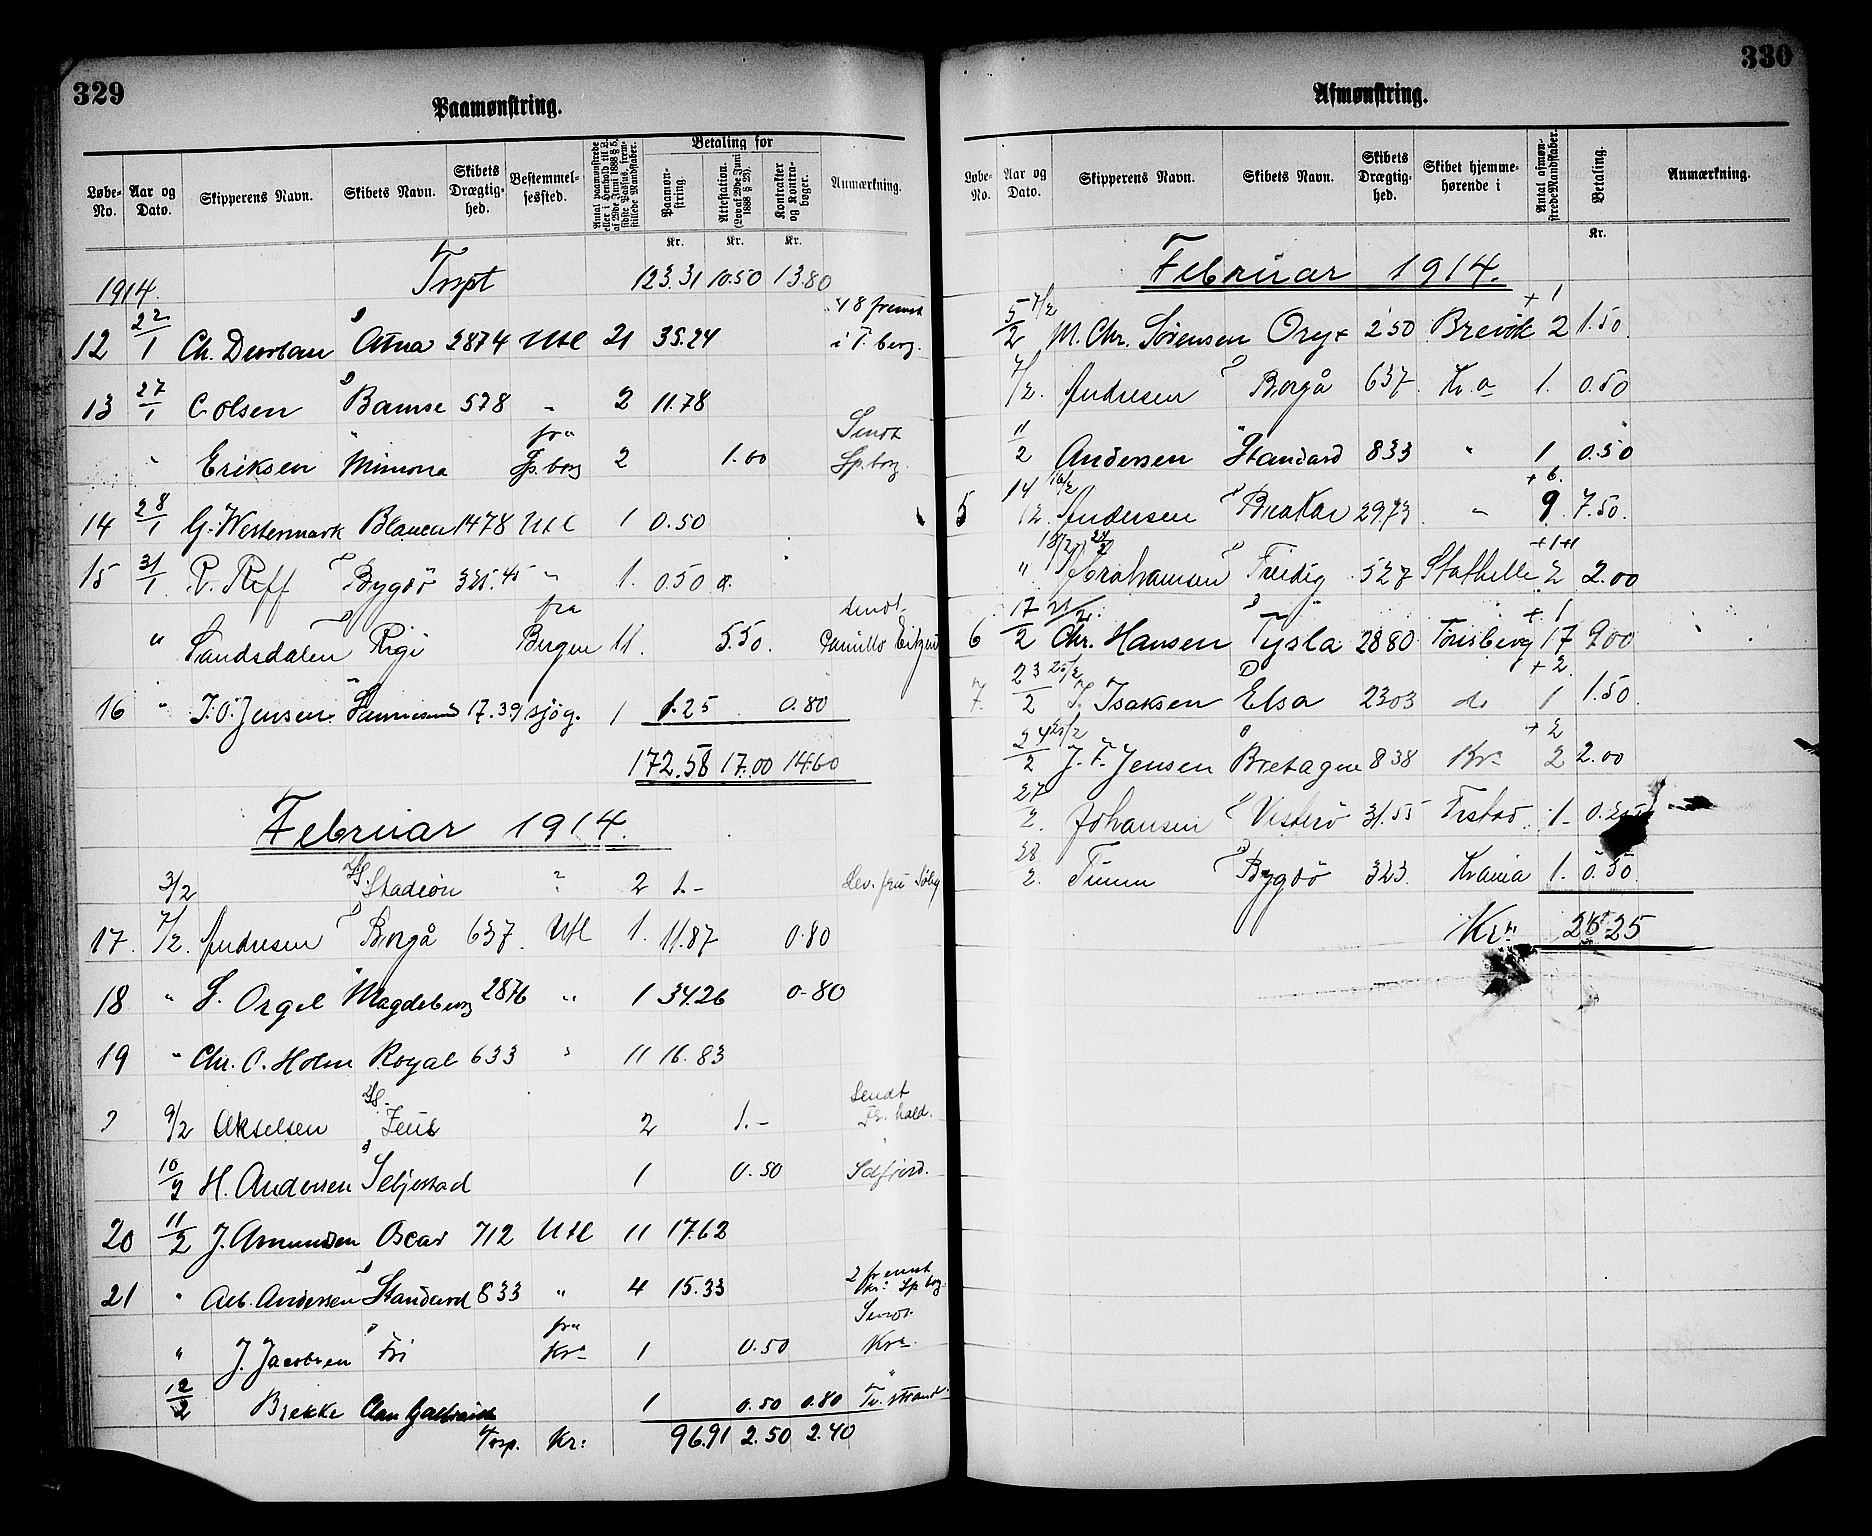 329
Paamønstring.
Løbe-No. Aar og Dato. Skipperens Navn. Skibets Navn. Skibets Drægtig-hed. Bestemmel-sessted. Antal paamønstrede eller i Henhold til L. af 29de Juni 1888 § 5, sidste Passus, frem-stillede Mandskaber. Betaling for Paamøn-string. Attestation. (Lov af 29de Juni 1888 § 25). Kontrakter og Kontra-bøger. Anmærkning.
Kr. Kr. Kr.
1914. Trspt 123.31 10.50 13.80
12 22/1 Ch. Atna 2874 Utl 21 35.24 48 fremst i T.berg.
13 27/1 C. Olsen Bamse 578 " 2 11.78
" Eriksen Mimona fra Fr.borg 2 1.00 Sendt Sp.borg.
14 28/1 G. Westermark Blaaen 1478 Utl 1 0.50
15 31/1 R. Reff Bygdö 325.45 " 1. 0.50
" Sandsdalen Rigi fra Bergen 11. 5.50. Sendt Camillo
16 " J.O. Jensen 17.39 sjøg. 1 1.25 0.80
172.58 17.00 14.60
Februar 1914.
3/2 Stadion " 2 1.-
17. 7/2. Andresen Borgå 637. Utl 1. 11.87 0.80
18 " S. Orgel Magdeburg 2876 " 1 34.26 0.80
19 " Chr. O. Holm Royal 633 " 11 16.83
9/2 Akselsen Zeus 2 1.- Sendt Fr. hald.
10/2 H. Andersen Seljestad 1 0.50
20 11/2 J. Amundsen Oscar 712 Utl 11 17.62
21 " Alb. Andersen Standard 833 " 4 15.33 2 fremst Kr. Sp borg
" J. Jacobsen Fri fra Kra 1 0.50 Sendt Kra.
12/2 Brekke Clan Galbraith 1 0.50 0.80 Tv.strand.
Trsp. Kr: 96.91 2.50 2.40
330
Afmønstring.
Løbe-No. Aar og Dato. Skipperens Navn. Skibets Navn. Skibets Drægtig-hed. Skibet hjemme-hørende i Antal afmøn-strede Mandskaber. Betaling. Anmærkning.
Kr.
Februar 1914.
5/2 7/2 M. Chr. Sörensen Oryx 250 Brevik 2 + 1 1.50
7/2. Andresen Borgå 637. Kr.a 1. 0.50
11/2 Andersen Standard 833 " 1 0.50
5 14/2. 16/2 Andersen Brakar 2973. " 9. + 6. 7.50.
" 18/2 24/2 Abrahamsen Fredig 527 Stathelle 2 +1+1 2.00
6 17/2 21/2. Chr. Hansen Tysla 2880 Tönsberg 17 + 1 9.00
7. 23/2 25/2 J. Isaksen Elsa 2303 do 1 + 2. 1.50
24/2 25/2 J. F. Jensen Bretagne 838 Kra 2 + 2 2.00
27/2. Johansen Visterö 31.55 Frstad. 1-
28/2. Timm Bygdö 323. Krania 1. 0.50
Kr. 25